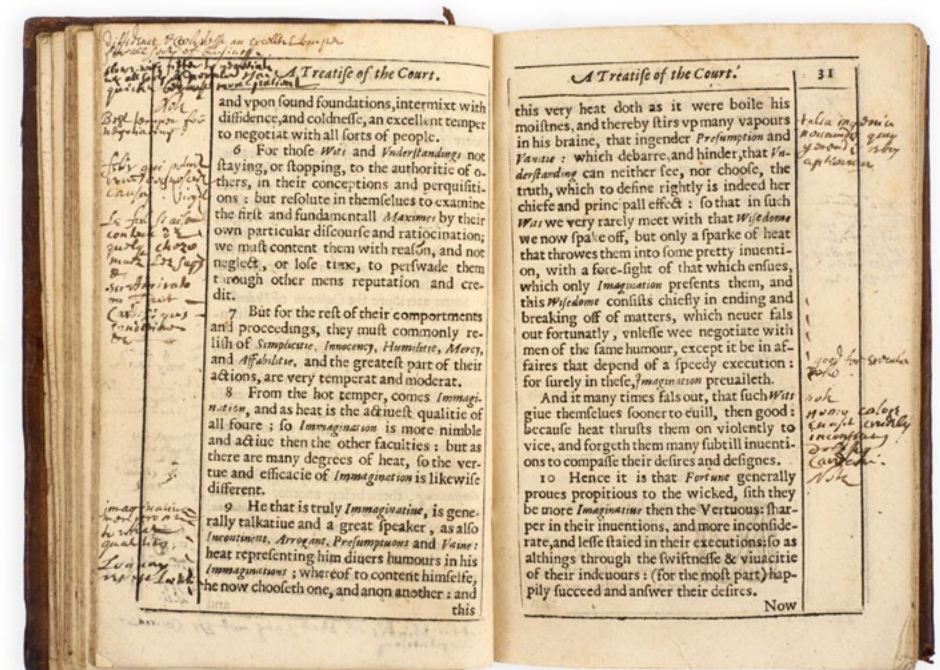 A Treatiſe of the Court.
and vpon ſound foundations, intermixt with
diffidence, and coldneſſe, an excellent temper
to negotiat with all ſorts of people.
6 For thoſe Wits and Vnderſtandings not
ſtaying, or ſtopping, to the authoritie of o-
thers, in their conceptions and perquiſiti-
ons : but reſolute in themſelues to examine
the firſt and fundamentall Maximes by their
own particular diſcourſe and ratiocination;
we muſt content them with reaſon, and not
neglect, or loſe time, to perſwade them
through other mens reputation and cre-
dit.
7 But for the reſt of their comportments
and proceedings, they muſt commonly re-
liſh of Simplicitie, Innocency, Humilitie, Mercy,
and Affabilitie, and the greateſt part of their
actions, are very temperat and moderat.
8 From the hot temper, comes Immagi-
nation, and as heat is the actiueſt qualitie of
all foure ; ſo Immagination is more nimble
and actiue then the other faculties : but as
there are many degrees of heat, ſo the ver-
tue and efficacie of Immagination is likewiſe
different.
9 He that is truly Immaginatiue, is gene-
rally talkatiue and a great ſpeaker, as alſo
Incontinent, Arrogant, Preſumptuous and Vaine :
heat repreſenting him diuers humours in his
Immaginations ; whereof to content himſelfe,
he now chooſeth one, and anon another : and
this
A Treatiſe of the Court.
31
this very heat doth as it were boile his
moiſtnes, and thereby ſtirs vp many vapours
in his braine, that ingender Preſumption and
Vanitie : which debarre, and hinder, that Vn-
derſtanding can neither ſee, nor chooſe, the
truth, which to define rightly is indeed her
chiefe and principall effect : ſo that in ſuch
Wits we very rarely meet with that Wiſedome
we now ſpake off, but only a ſparke of heat
that throwes them into ſome pretty inuenti-
on, with a fore-ſight of that which enſues,
which only Imagination preſents them, and
this Wiſedome conſiſts chiefly in ending and
breaking off of matters, which neuer fals
out fortunatly , vnleſſe wee negotiate with
men of the ſame humour, except it be in af-
faires that depend of a ſpeedy execution :
for ſurely in theſe, Imagination preuaileth.
And it many times fals out, that ſuch Wits
giue themſelues ſooner to euill, then good :
becauſe heat thruſts them on violently to
vice, and forgeth them many ſubtill inuenti-
ons to compaſſe their deſires and deſignes.
10 Hence it is that Fortune generally
proues propitious to the wicked, ſith they
be more Imaginatiue then the Vertuous: ſhar-
per in their inuentions, and more inconſide-
rate, and leſſe ſtaied in their executions: ſo as
althings through the ſwiftneſſe & viuacitie
of their indeuours : (for the moſt part) hap-
pily ſucceed and anſwer their deſires.
Now